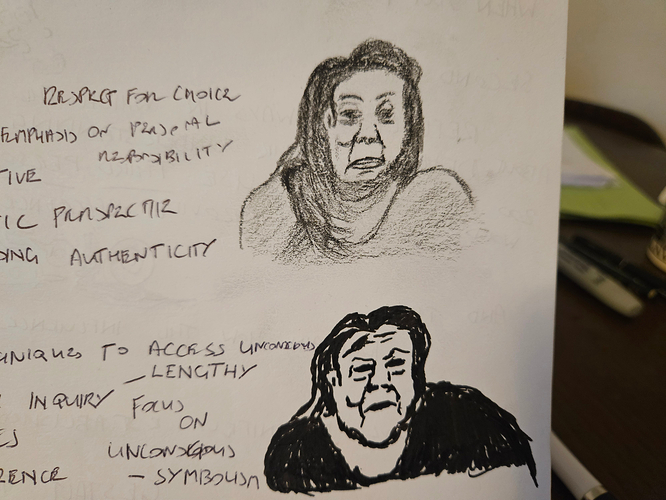 RESPECT FOR CHOICE
EMPHASIS ON PERSONAL
RESPONSIBILITY
TIVE
TIC PERSPECTIVE
DING AUTHENTICITY
HNIQUES TO ACCESS UNCONSCIOUS
– LENGTHY
INQUIRY FOCUS
ON
ES UNCONSCIOUS
RENCE – SYMBOLISM